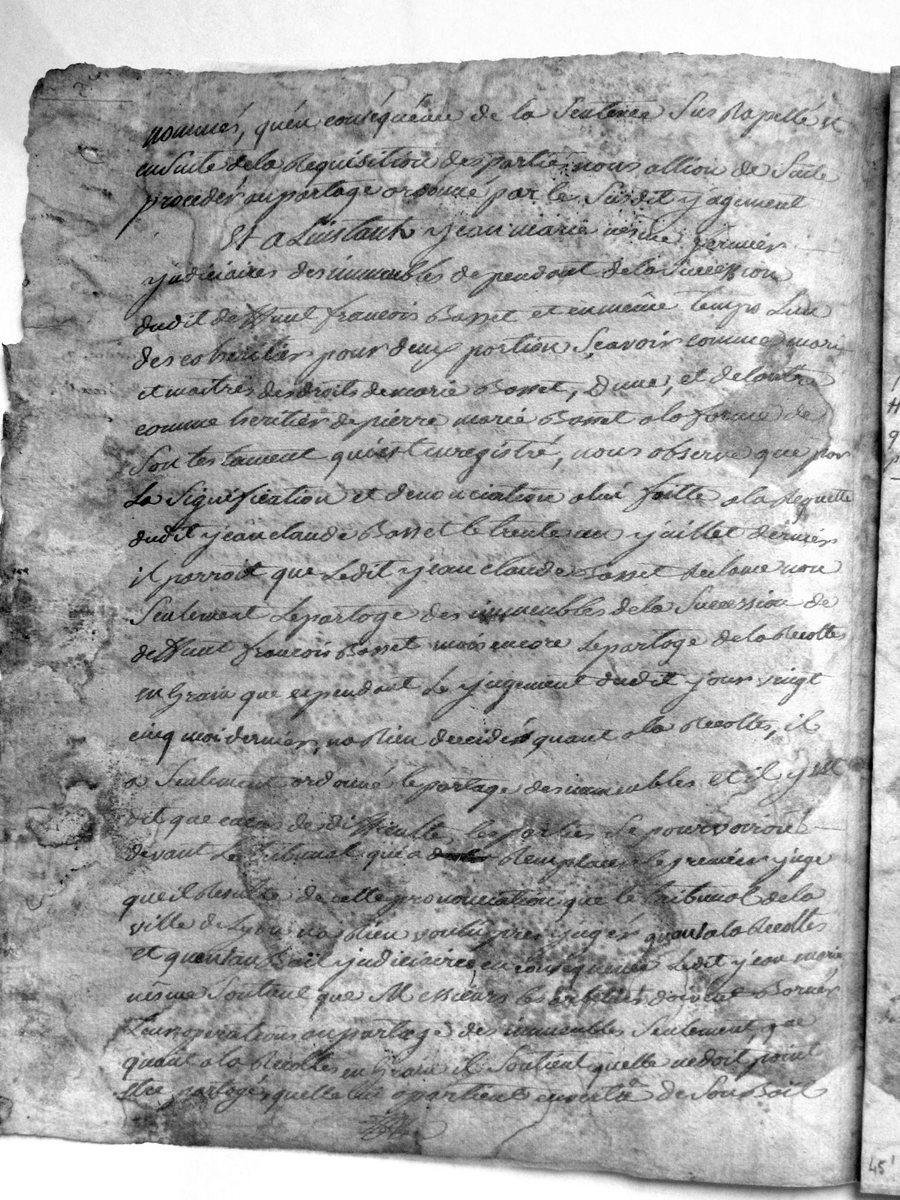 nommés, qu'en conséquence de la Sentence Sus Rapellé et
ensuite de la Requisition des parties nous allion de Suite
proceder au partage ordonné par le Susdit yugement
Et a Linstant yean marie nesme fermier
yudiciaires des immeubles dependant de la Succession
dudit deffunt francois Basset et en même temps Lun
des coheritiers pour deux portion Scavoir comme mari
et maitre des droits de marie Basset, Dune, et de Lautre
comme heritier de pierre marie Basset a la forme de
Son testament qui est enregistré, nous observe que par
La Signification et denonciation a lui faitte a la Requette
dudit yean claude Basset le trente un yuillet dernier
il parroit que Ledit yean claude Basset Reclame non
Seulement Le partage des immeubles de la Succession de
deffunt francois Basset mais encore Le partage de la Recoltes
en Grain que cependant Le yugement dudit your vingt
cinq mai dernier, na Rien decidé quant a la Recoltes, il
a Seulement ordonné le partage des immeubles et il y est
dit que en cas de difficulte les parties Se pourvoiront
devant Le tribunal qui a Remplacé le premier yuge
que il Resulte de cette prononciation que le tribunal de la
ville de Lyon na Rien voulu preyuger quant a la Recoltes
et quant au Bail yudiciaire en conséquence Ledit yean marie
nesme Soutient que Messieurs les arbitres doivent Borner
Leurs operations au partage des immeubles Seulement, que
quant a la Recoltes en Grain il Soutient quelle ne doit point
Etre partagée, quelle lui apartient en vertu de Son Bail